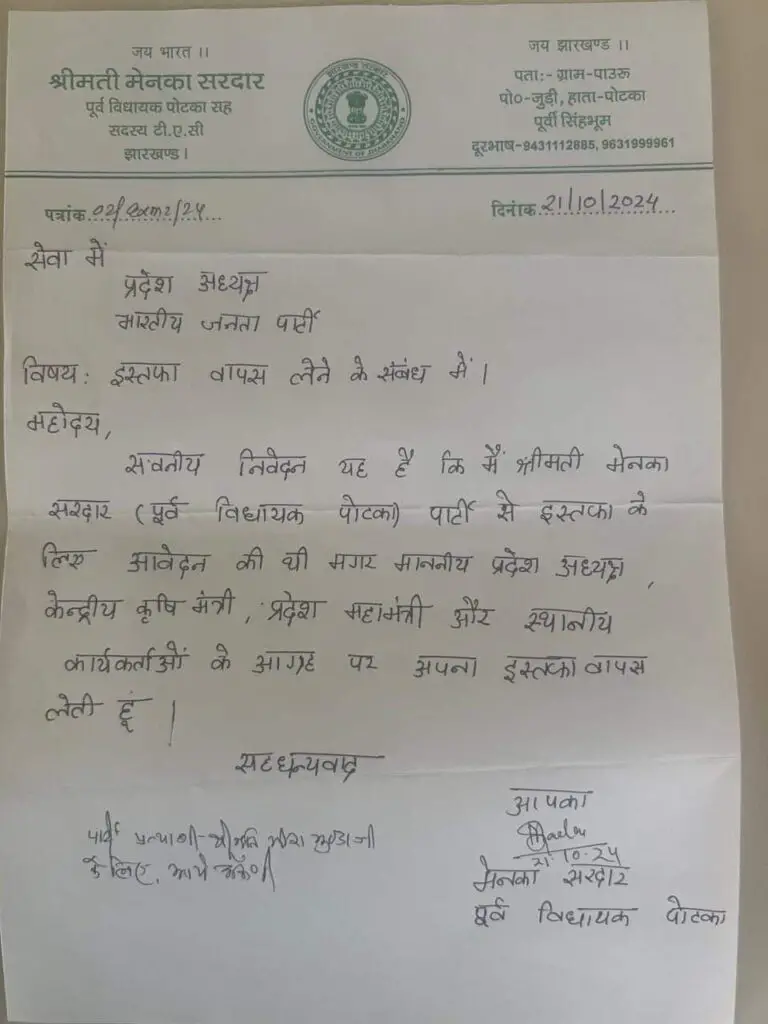 जय भारत ।।
श्रीमती मेनका सरदार
पूर्व विधायक पोटका सह
सदस्य टी.ए.सी
झारखण्ड।
GOVERNMENT OF JHARKHAND
जय झारखण्ड ।।
पता:- ग्राम-पाउरू
पो०-जुड़ी, हाता-पोटका
पूर्वी सिंहभूम
दूरभाष-9431112885, 9631999961
पत्रांक 02/ /24
दिनांक 21/10/2024
सेवा में
प्रदेश अध्यक्ष
भारतीय जनता पार्टी
विषय: इस्तफा वापस लेने के संबंध में।
महोदय,
सवनीय निवेदन यह है कि मैं श्रीमती मेनका
सरदार (पूर्व विधायक पोटका) पार्टी से इस्तफा के
लिए आवेदन की थी मगर माननीय प्रदेश अध्यक्ष,
केन्द्रीय कृषि मंत्री, प्रदेश महामंत्री और स्थानीय
कार्यकर्ताओं के आग्रह पर अपना इस्तफा वापस
लेती हूं।
सहधन्यवाद
आपका
21.10.24
मेनका सरदार
पूर्व विधायक पोटका
पार्टी प्रत्याशी श्रीमति मीरा मुण्डा जी
के लिए,